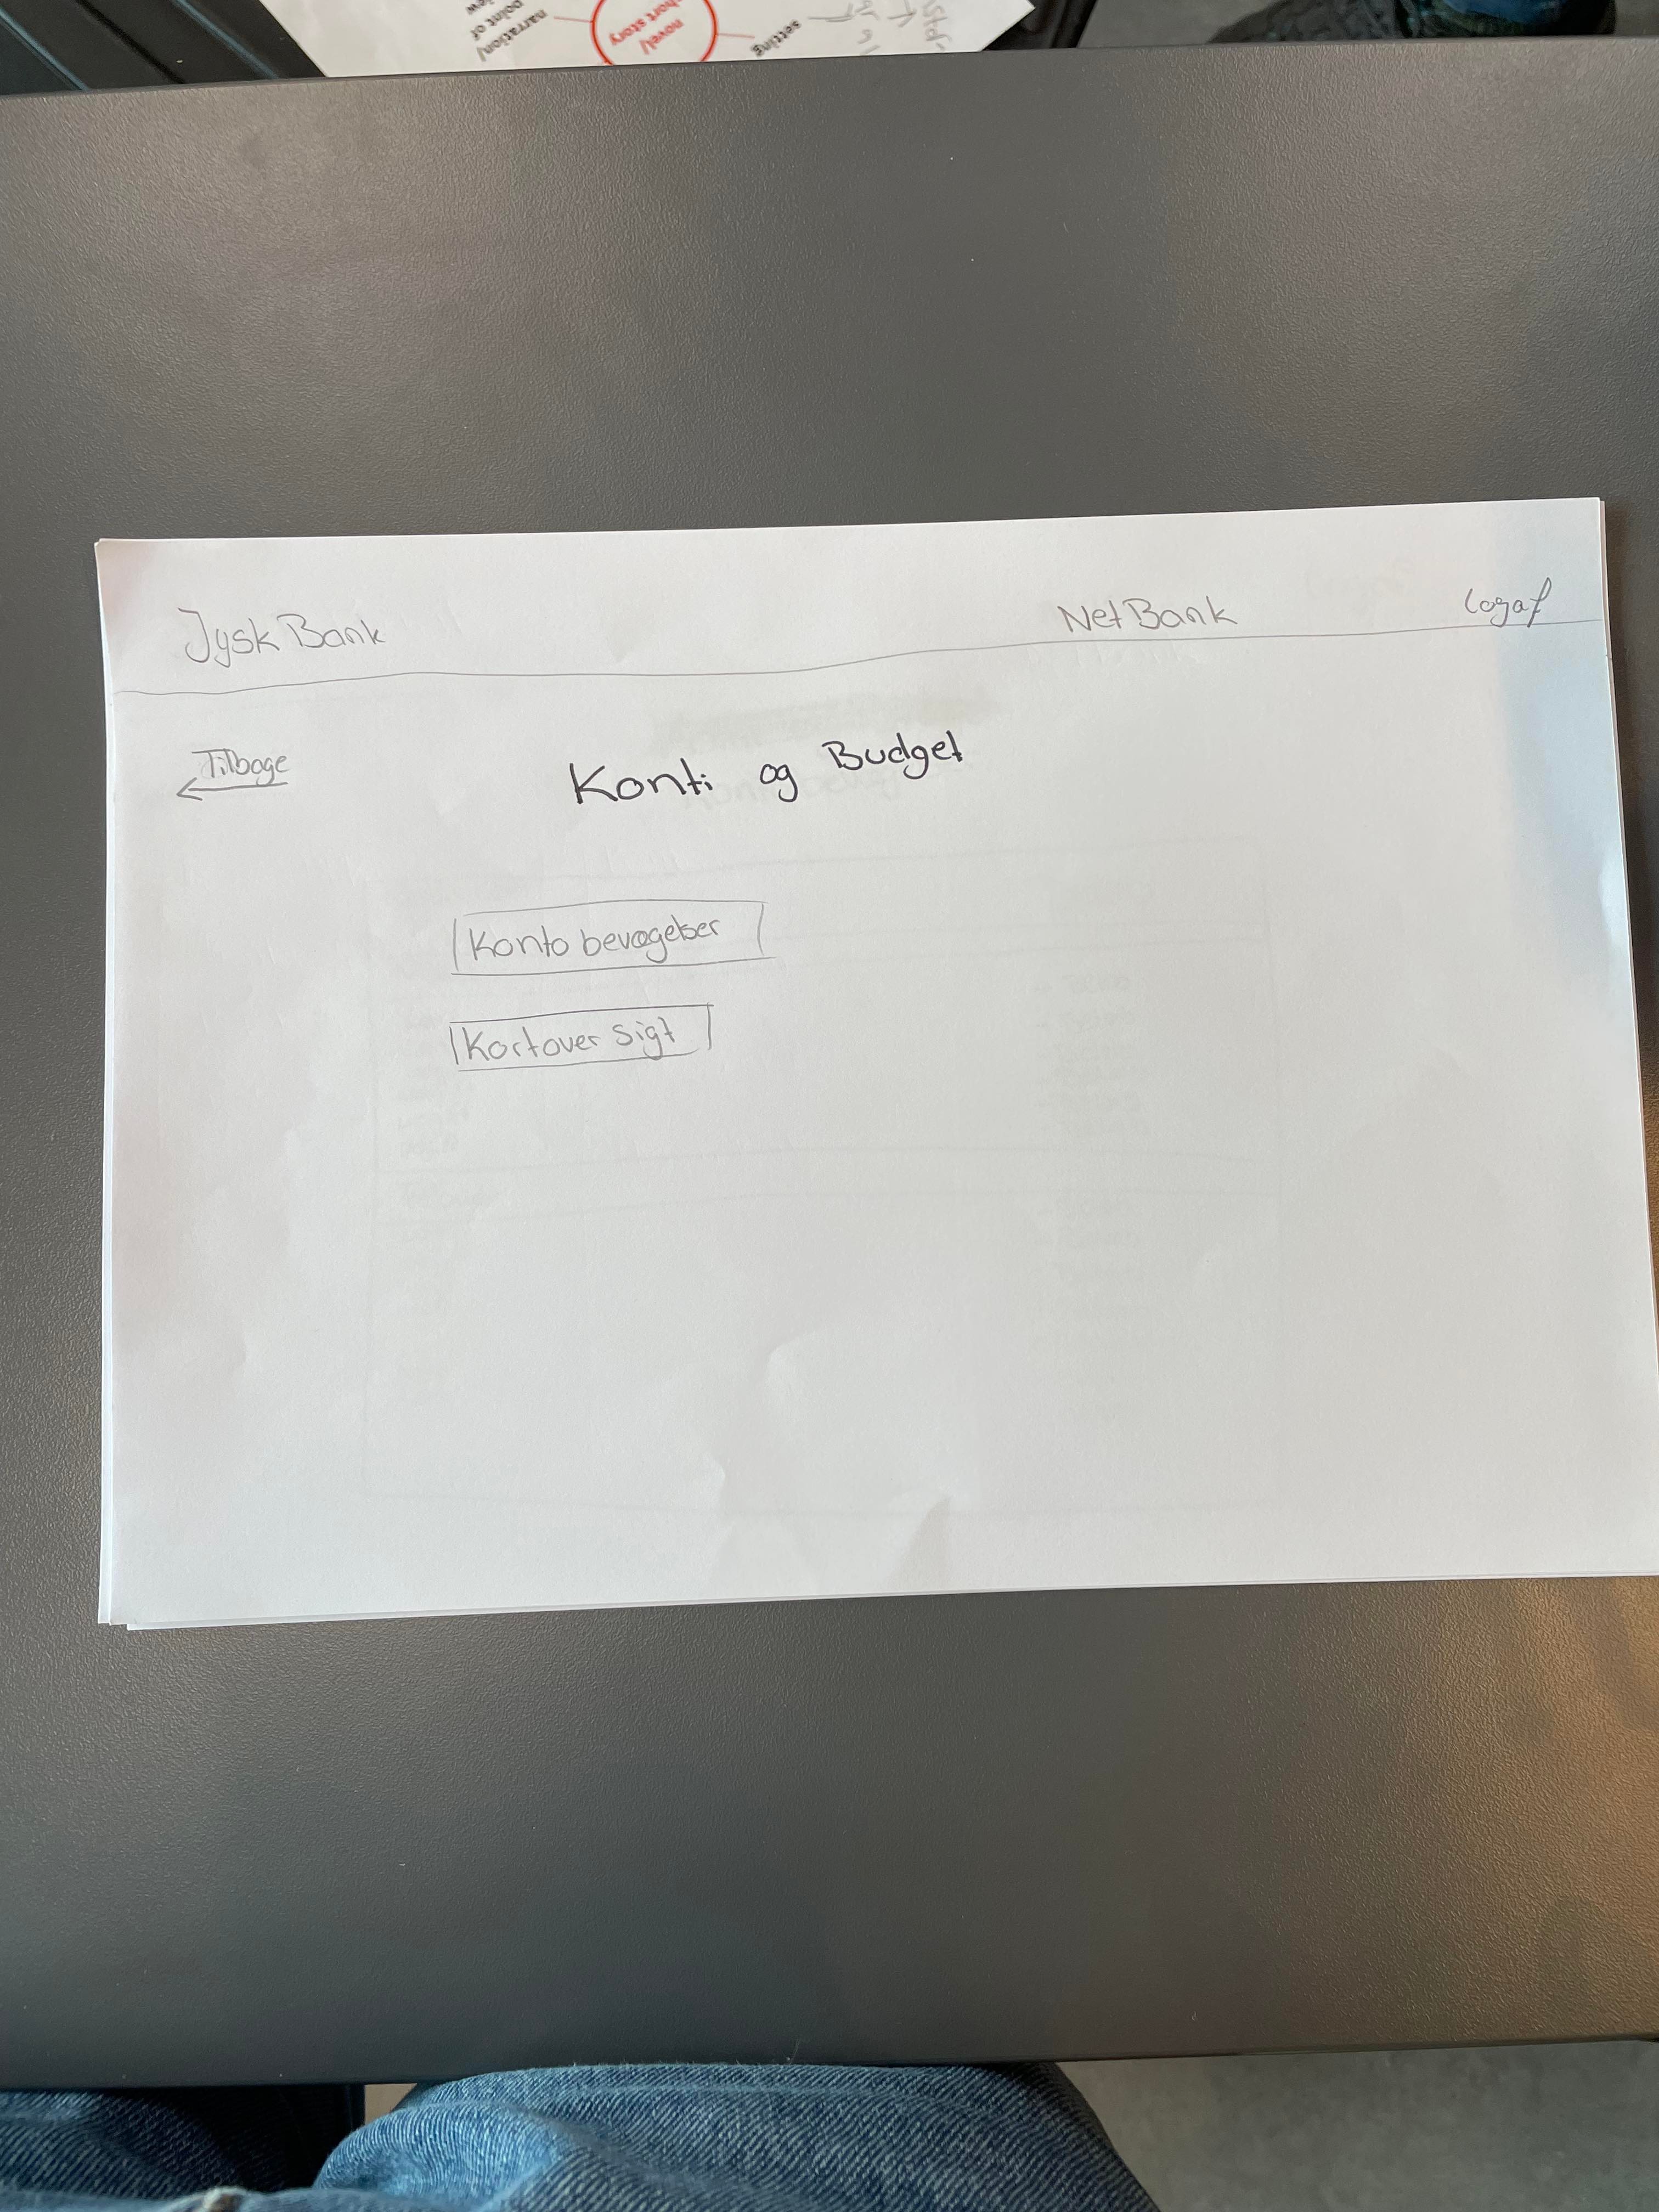 narration/
point of
novel/
short story
setting
Jysk Bank NetBank Logaf
Tilbage
Konti og Budget
Konto bevægelser
Kortover sigt